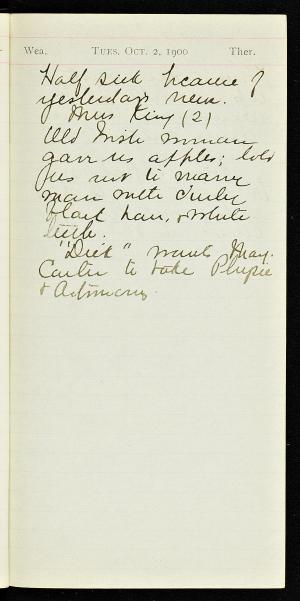 Wea. Tues. Oct. 2, 1900 Ther.
Half sick because of
yesterday's news.
Miss King (2)
Old Irish woman
gave us apples; told
us not to marry
man with curly
black hair, & white
teeth.
"Dick" wants May
Carter to take Physic
& Astronomy.